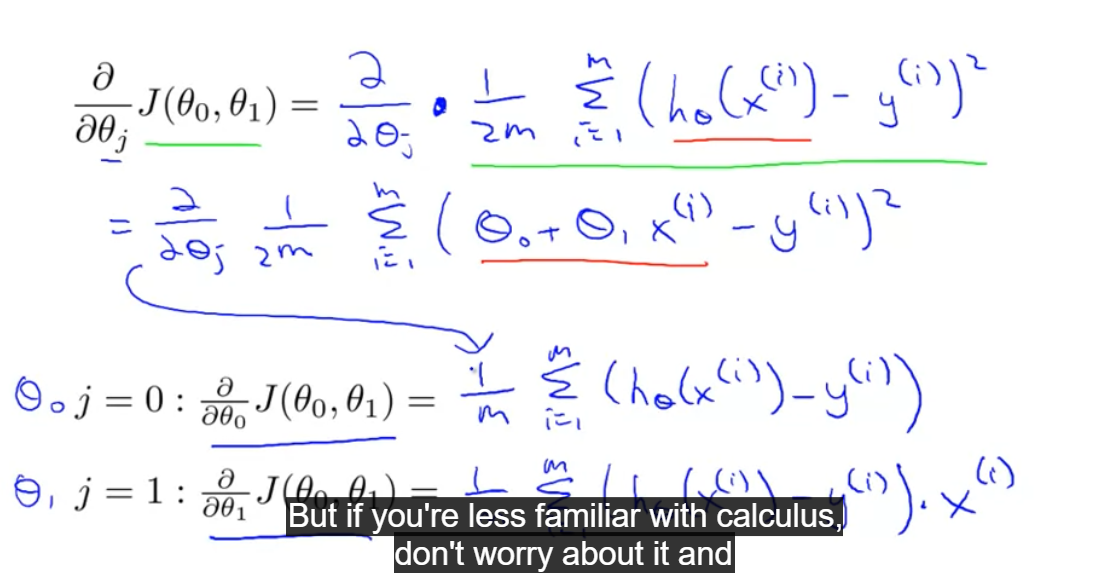 ∂/∂θⱼ J(θ₀, θ₁) = ∂/∂θⱼ · 1/2m Σᵢ₌₁ᵐ (h_θ(x⁽ⁱ⁾) - y⁽ⁱ⁾)²
= ∂/∂θⱼ 1/2m Σᵢ₌₁ᵐ (θ₀ + θ₁ x⁽ⁱ⁾ - y⁽ⁱ⁾)²
θ₀ j = 0 : ∂/∂θ₀ J(θ₀, θ₁) = 1/m Σᵢ₌₁ᵐ (h_θ(x⁽ⁱ⁾) - y⁽ⁱ⁾)
θ₁ j = 1 : ∂/∂θ₁ J(θ₀, θ₁) = 1/m Σᵢ₌₁ᵐ (h_θ(x⁽ⁱ⁾) - y⁽ⁱ⁾) . x⁽ⁱ⁾
But if you're less familiar with calculus,
don't worry about it and